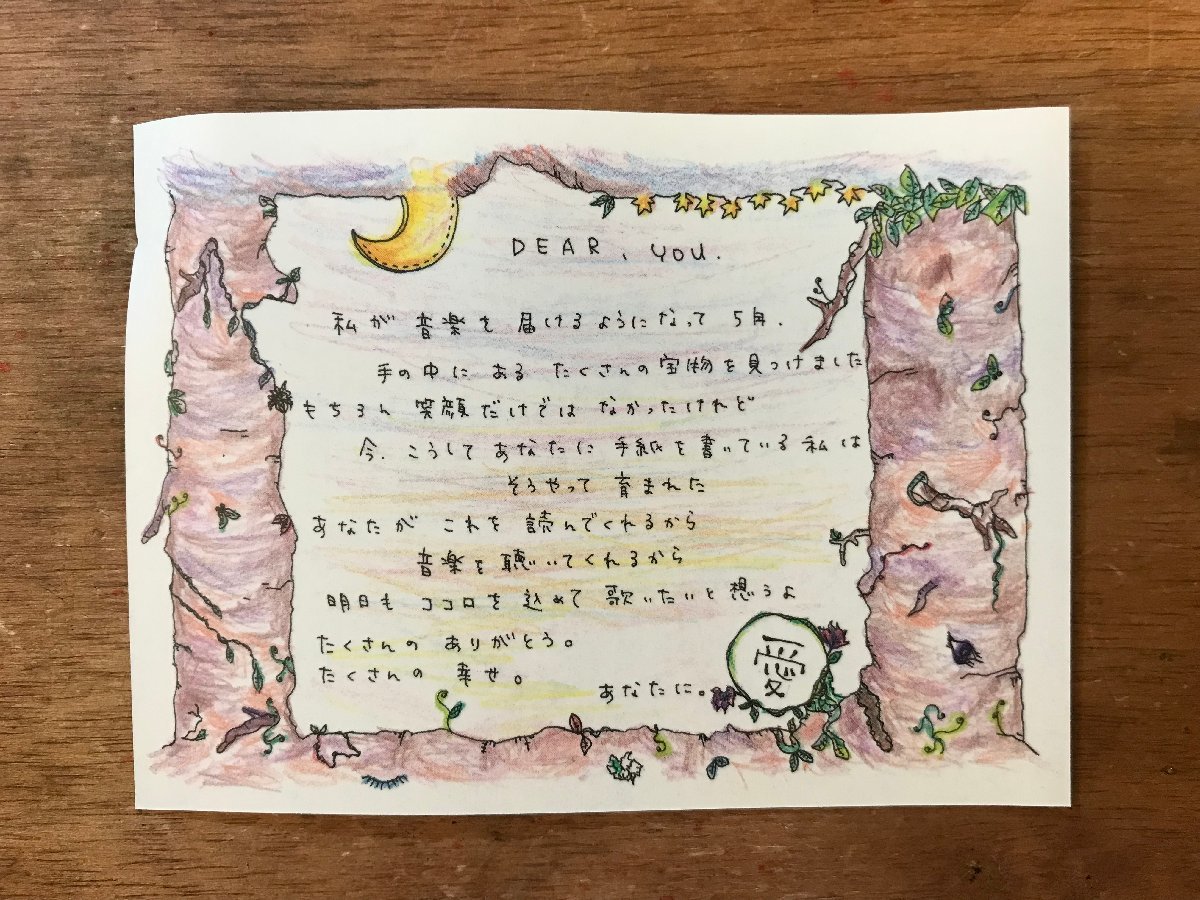 DEAR, YOU.
私が 音楽を 届けるようになって 5年.
手の中に ある たくさんの宝物を見つけました
もちろん 笑顔だけでは なかったけれど
今. こうして あなたに 手紙を書いている私は
そうやって 育まれた
あなたが これを 読んでくれるから
音楽を聴いてくれるから
明日も ココロを 込めて 歌いたいと想うよ
たくさんの ありがとう。
たくさんの 幸せ。
あなたに。
愛